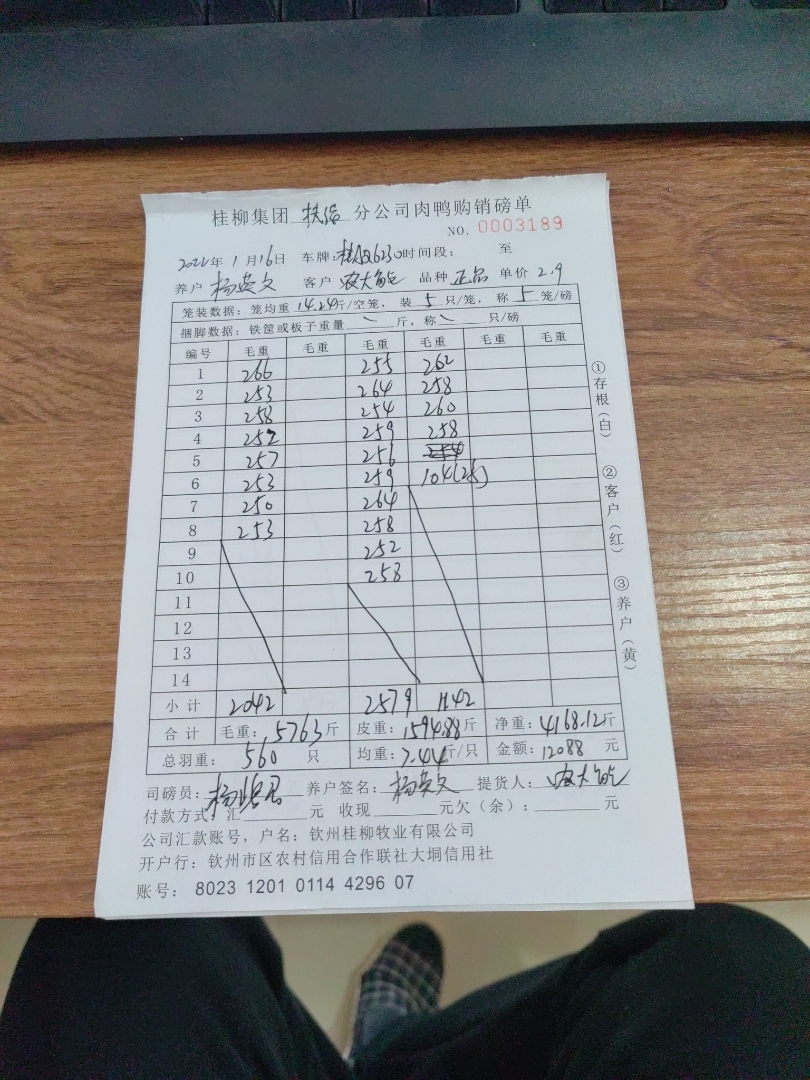 桂柳集团 扶绥 分公司肉鸭购销磅单
NO. 0003189
2022年1月16日 车牌:桂A06230时间段: 至
养户 杨英文 客户 农大能 品种 正品 单价 2.9
笼装数据: 笼均重 14.24斤/空笼, 装 5 只/笼, 称 5 笼/磅
捆脚数据: 铁筐或板子重量 \ 斤, 称 \ 只/磅
编号 毛重 毛重 毛重 毛重 毛重 毛重
1 266 255 262
2 253 264 258
3 258 254 260
4 252 259 258
5 257 256 254
6 253 259 104(2笼)
7 250 264
8 253 258
9 252
10 258
11
12
13
14
小计 2042 2579 1142
合计 毛重: 5763斤 皮重: 1594.88斤 净重: 4168.12斤
总羽重: 560 只 均重: 7.44斤/只 金额: 12088 元
司磅员: 养户签名: 杨英文 提货人: 农大能
付款方式: 汇 元 收现 元欠(余): 元
公司汇款账号, 户名: 钦州桂柳牧业有限公司
开户行: 钦州市区农村信用合作联社大垌信用社
账号: 8023 1201 0114 4296 07
①存根(白)
②客户(红)
③养户(黄)